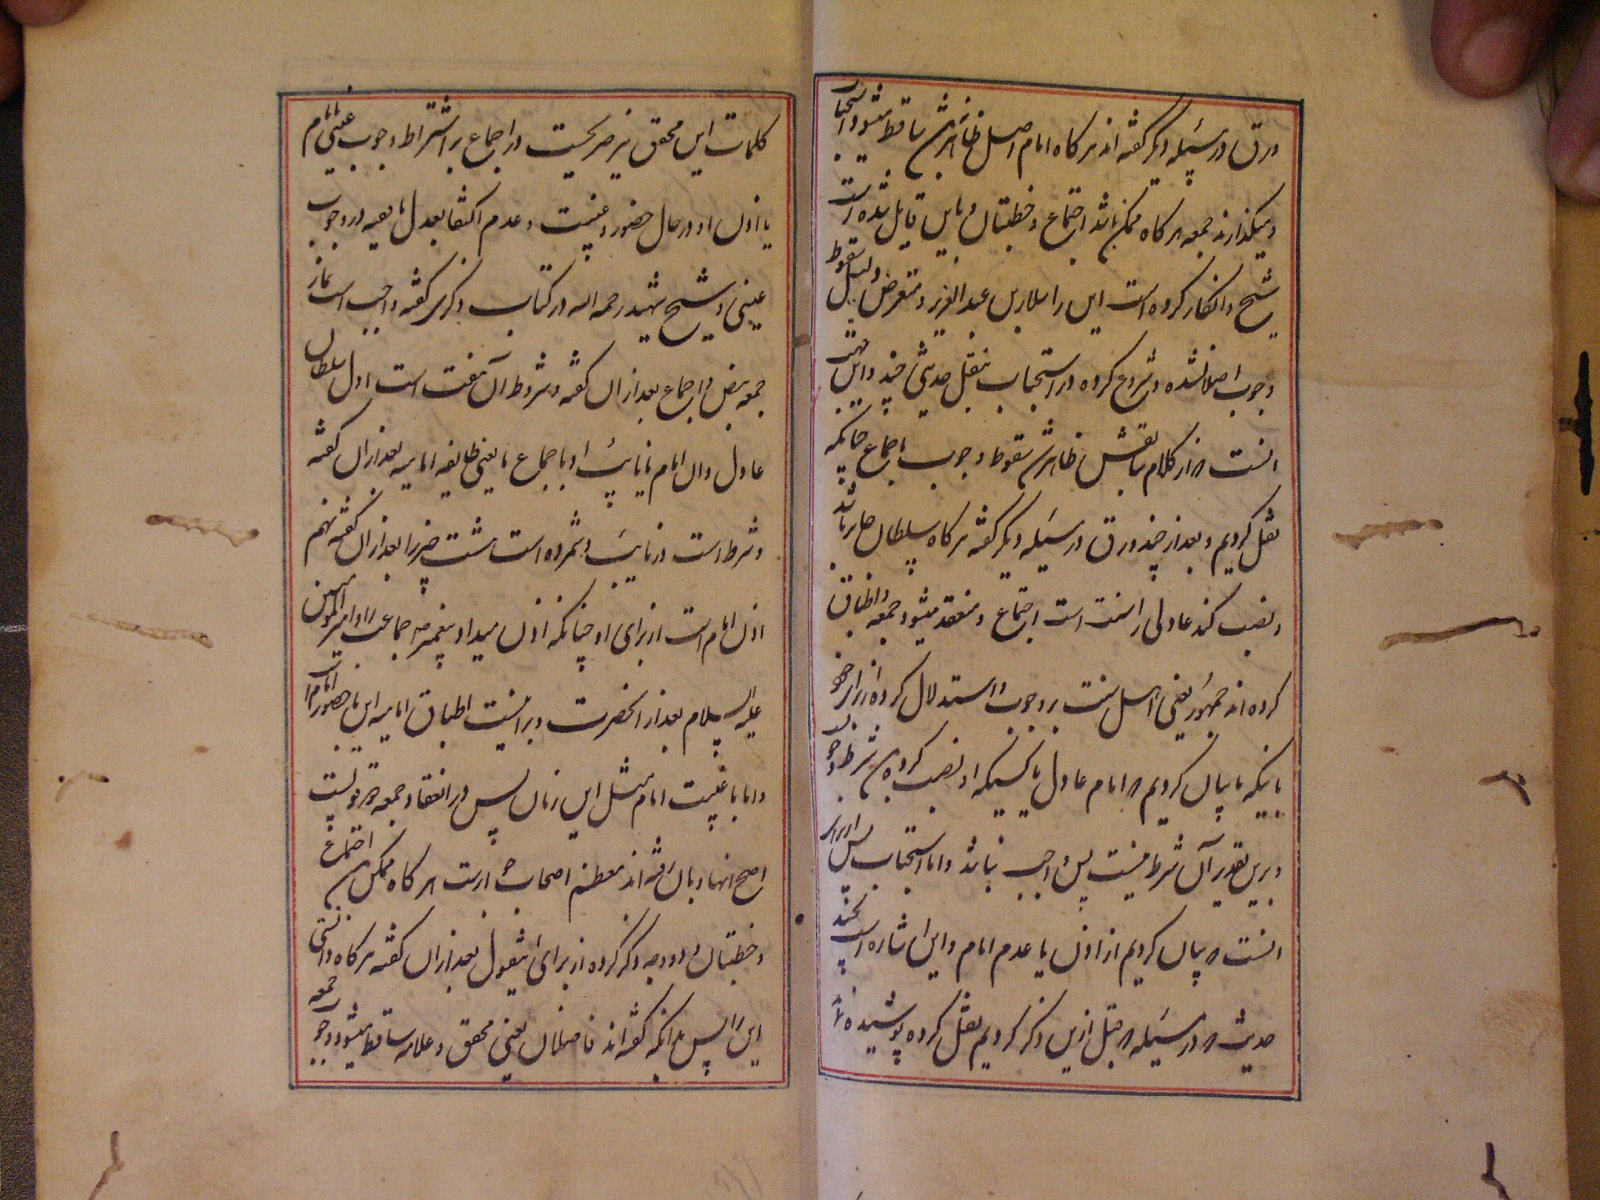 ورق در مسئله دیگر گفته اند هر گاه امام اصل ظاهر نباشد ساقط میشود و استحباب
و میگذارند جمعه هر گاه ممکن باشد اجتماع و خطبتان و باین قایل شده است
شیخ و انکار کرده است این را سلار بن عبد العزیز و متعرض دلیل سقوط
وجوب اصلا نشده و شروع کرده در استحباب بنقل حدیثی چند و این جهت
انست از کلام سابقش ظاهر شد سقوط وجوب باجماع چنانکه
نقل کردیم و بعد از چند ورق در مسئله دیگر گفته هر گاه سلطان جایر باشد
و نصب کند عادلی را سنت است اجتماع و منعقد میشود جمعه و اطباق
کرده اند جمهور یعنی اهل سنت بر وجوب و استدلال کرده از برای خود
باینکه ما بیان کردیم امام عادل یا کسیکه او نصب کرده شرط وجوب
و برین تقدیر آن شرط نیست پس واجب نباشد و اما استحباب پس از برای
انست بیان کردیم از اذن با عدم امام و این اشاره است بچند
حدیث در مسئله قبل ازین ذکر کردیم نقل کرده پوشیده
کلمات این محقق نیز صریحست در اجماع بر اشتراط وجوب عینی بامام
یا اذن او در حال حضور و غیبت و عدم اکتفا بعدل یا فقیه در وجوب
عینی و شیخ شهید رحمه الله در کتاب ذکری گفته واجب است نماز
جمعه بنص و اجماع بعد از ان گفته و شروط آن هفت است اول سلطان
عادل و ان امام یا نایب او باجماع ما یعنی طایفه امامیه بعد از ان گفته
و شرط است در نایب و شمرده است هشت چیز را بعد از ان گفته نهم
اذن امام است از برای او چنانکه اذن میداد پیغمبر جماعت را و امیر المؤمنین
علیه السلام بعد از انحضرت و بر اینست اطباق امامیه این با حضور امام
و اما با غیبت امام مثل این زمان پس در انعقاد جمعه دو قولست
اصح انها و بان رفته اند معظم اصحاب جواز است هر گاه ممکن اجتماع
و خطبتان و دو وجه ذکر کرده از برای این قول بعد از ان گفته هر گاه دانستی
این را پس بدانکه گفته اند فاضلان یعنی محقق و علامه ساقط میشود وجوب جمعه